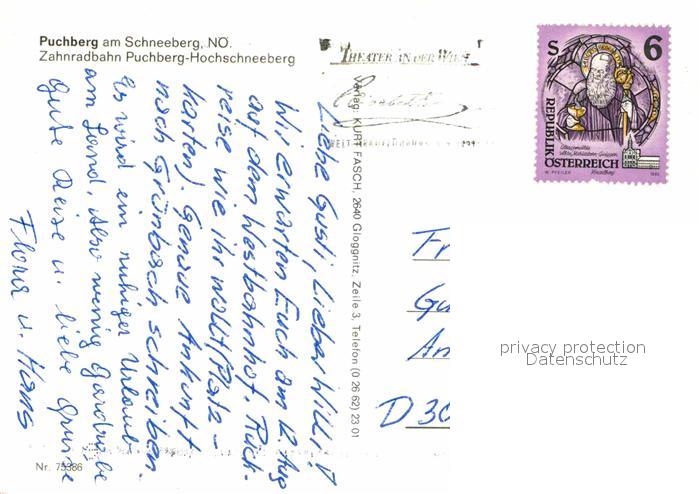 Puchberg am Schneeberg, NÖ.
Zahnradbahn Puchberg-Hochschneeberg
Liebe Gusti, Lieber Willi!
Wir erwarten Euch am 12. Aug
auf dem Westbahnhof. Rück-
reise wie ihr wollt (Platz-
karten). Genaue Ankunft
nach Grünbach schreiben.
Es wird ein ruhiger Urlaub
am Land, also wenig Garderobe
Gute Reise u. liebe Grüsse
Flora u. Hans
Nr. 75386
Verlag: KURT FASCH, 2640 Gloggnitz, Zeile 3, Telefon (0 26 62) 23 01
THEATER AN DER WIEN
Elisabeth
S 6
REPUBLIK
ÖSTERREICH
W. PFEILER
Fr
Gu
An
D 30
privacy protection
Datenschutz